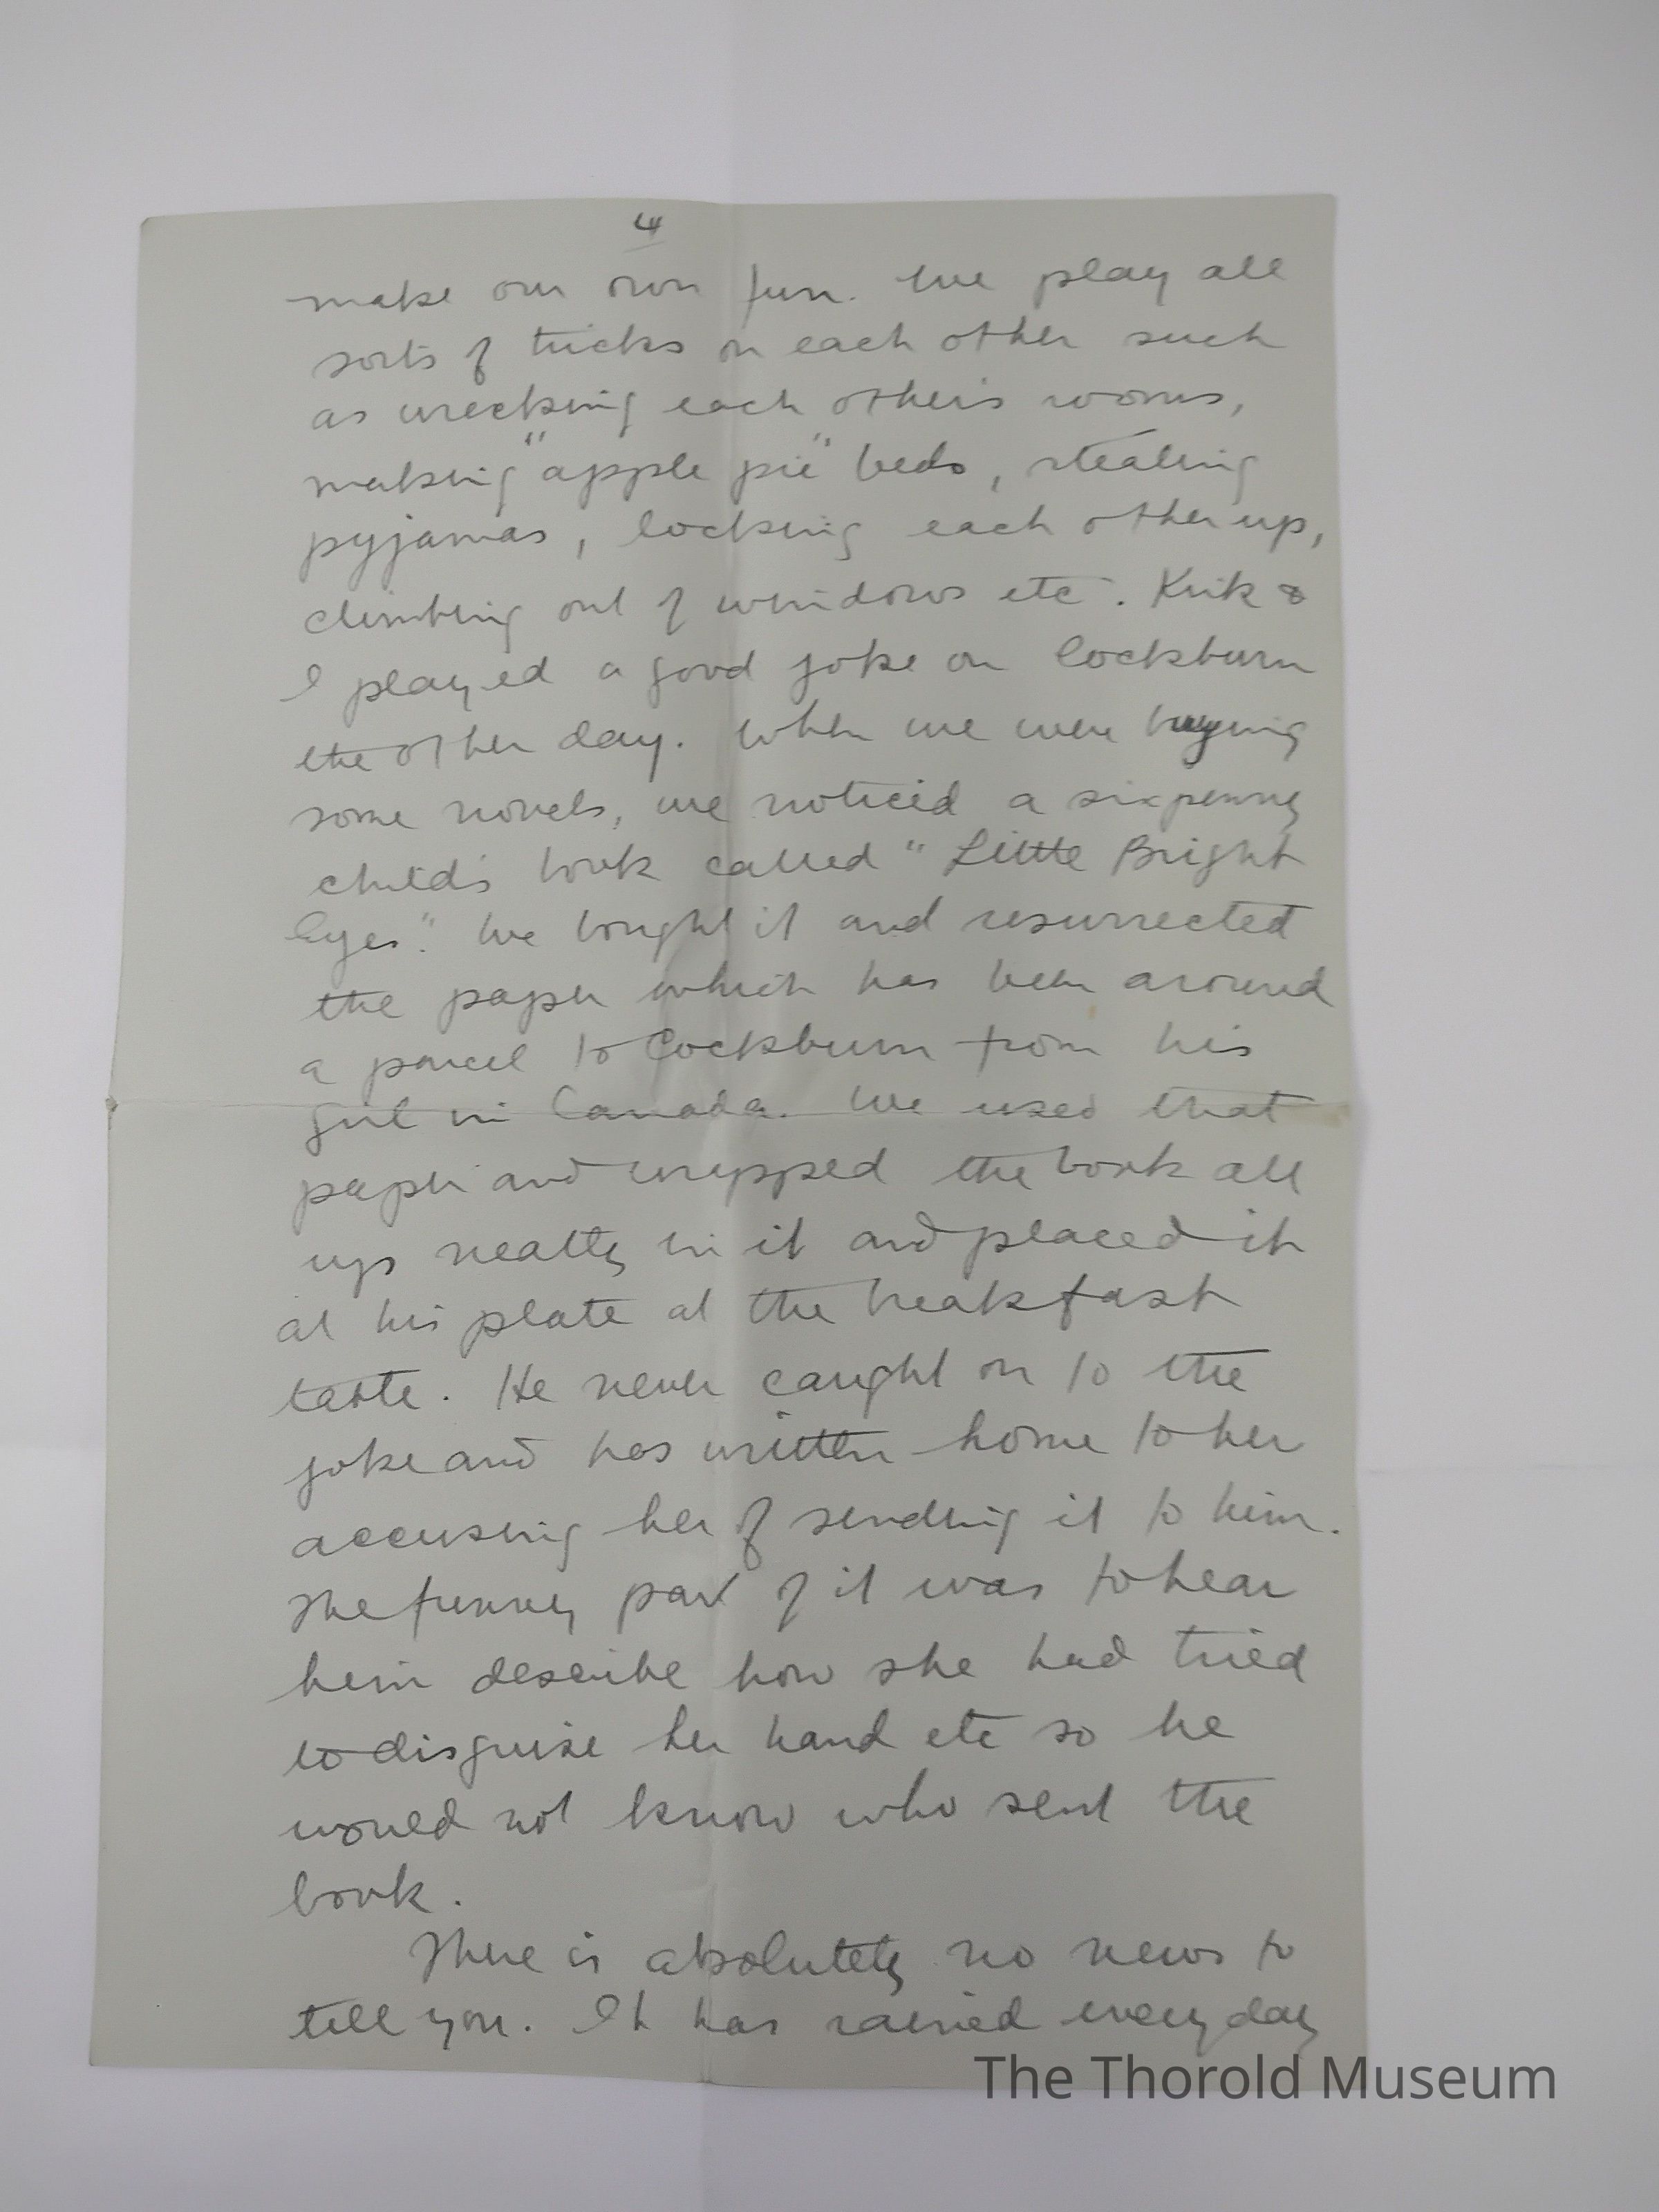 4
make our own fun. We play all
sorts of tricks on each other such
as wrecking each other's rooms,
making "apple pie" beds, stealing
pyjamas, locking each other up,
climbing out of windows etc. Kirk &
I played a good joke on Cockburn
the other day. When we were buying
some novels, we noticed a sixpenny
child's book called "Little Bright
Eyes." We bought it and resurrected
the paper which has been around
a parcel to Cockburn from his
girl in Canada. We used that
paper and wrapped the book all
up neatly in it and placed it
at his plate at the breakfast
table. He never caught on to the
joke and has written home to her
accusing her of sending it to him.
The funny part of it was to hear
him describe how she had tried
to disguise her hand etc so he
would not know who sent the
book.
There is absolutely no news to
tell you. It has rained every day
The Thorold Museum